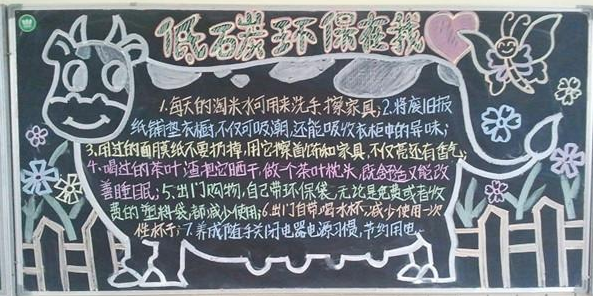 低碳环保在我
1.每天的淘米水可用来洗手,擦家具;2.将废旧报
纸铺垫衣橱,不仅可吸潮,还能吸收衣柜中的异味;
3.用过的面膜纸不要扔掉,用它擦首饰和家具,不仅亮还有香气;
4.喝过的茶叶渣把它晒干,做个茶叶枕头,既舒适又能改
善睡眠;5.出门购物,自己带环保袋,无论是免费或者收
费的塑料袋,都减少使用;6.出门自带喝水杯,减少使用一次
性杯子;7.养成随手关闭电器电源习惯,节约用电。